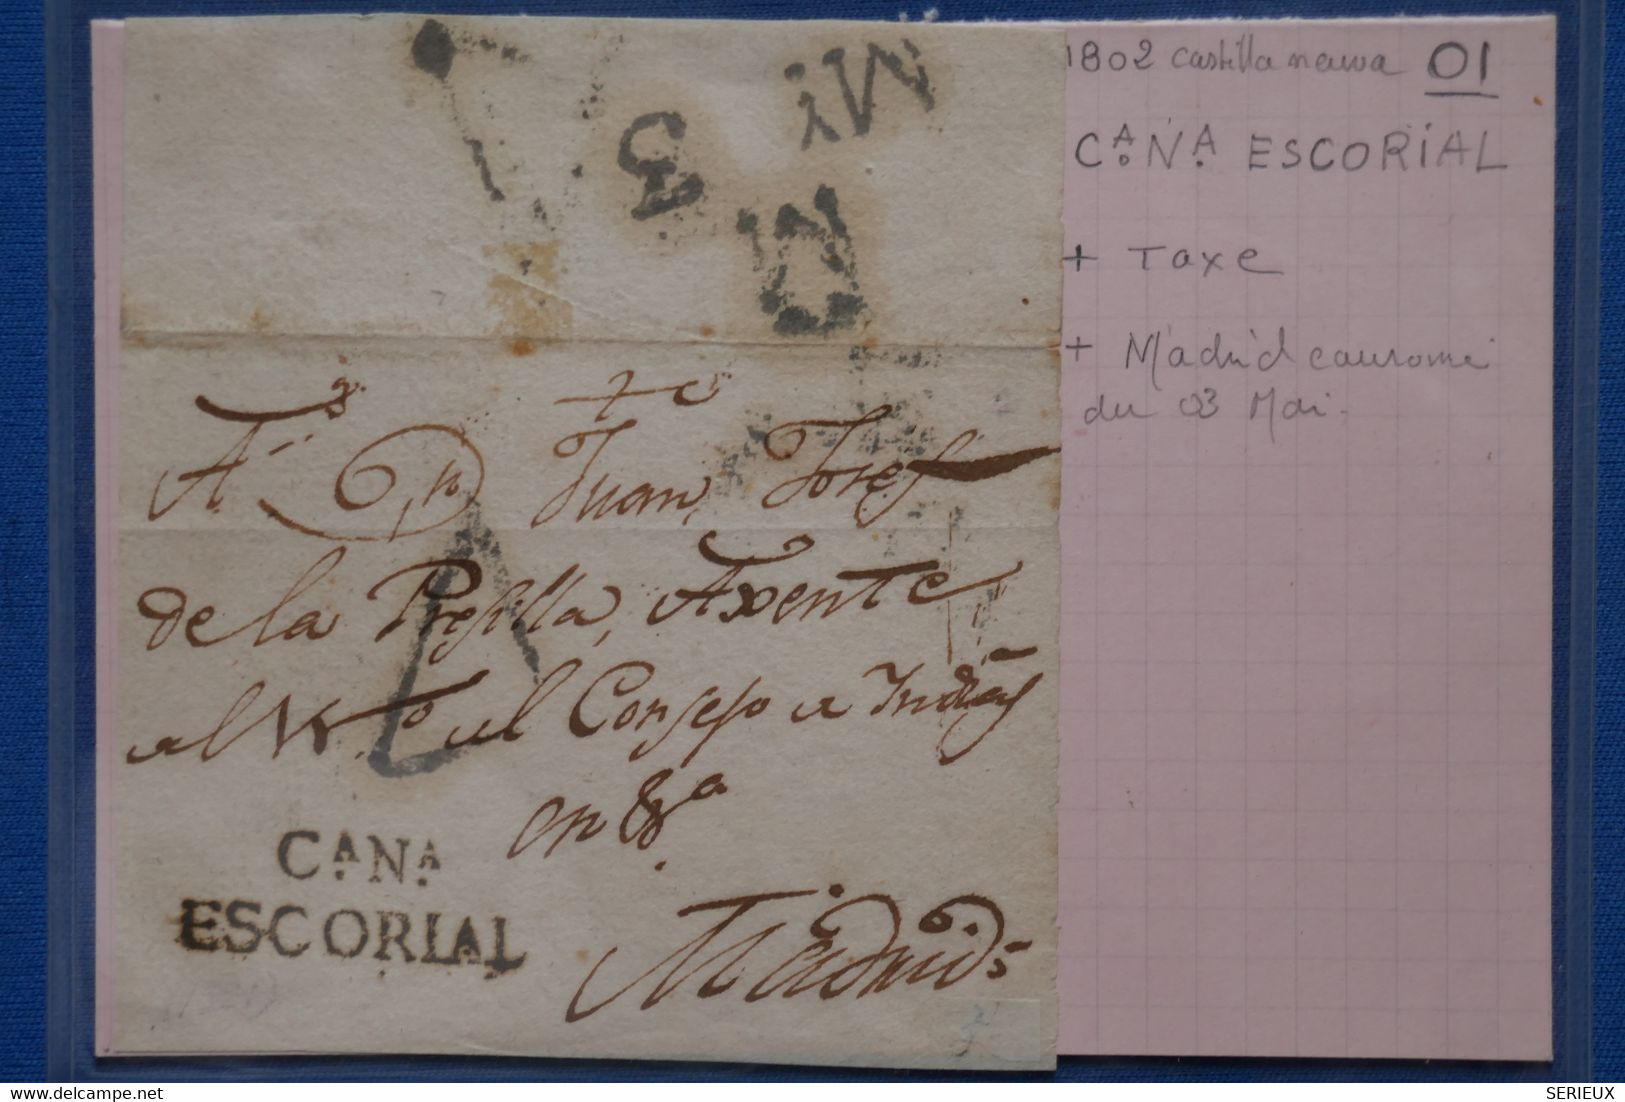 Mi
3
1802 Castilla nauva 01
CANA ESCORIAL
+ Taxe
+ Madrid couronné
du 03 Mai.
A Dn Juan Josef
de la Presilla, Axente
al Nro el Consejo de Indias
en 8a
CANA
ESCORIAL
Madrid
SERIEUX